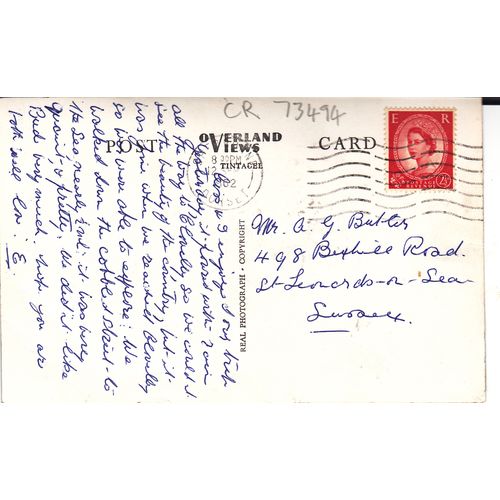 CR 73494
POST CARD
OVERLAND
VIEWS
TINTAGEL
E R
POSTAGE
REVENUE
2½
REAL PHOTOGRAPH - COPYRIGHT
Mr. A G Butler
498 Bexhill Road.
St Leonards-on-Sea
Sussex.
enjoyed our trip
yesterday, it poured with rain
all the way to Clovelly so we couldn't
see the beauty of the country, but it
was fine when we reached Clovelly
so we were able to explore: We
walked down the cobbled stairs to
the Sea nearly ½ ml: it was very
quaint, & pretty, we did it like
Bud very much. Hope you are
both well love: E